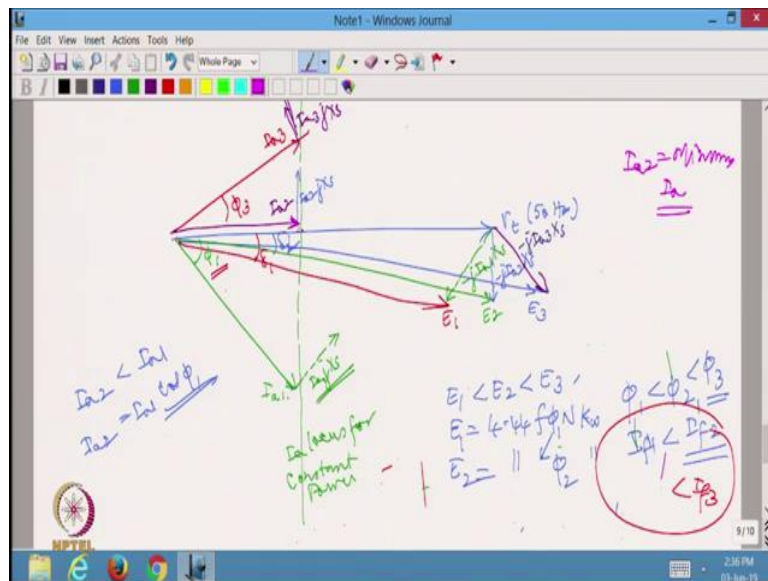 Note1 - Windows Journal
File Edit View Insert Actions Tools Help
Whole Page
B I
Ia3jXs
Ia3
Ia2jXs
Ia2
φ3
Vt (50 Hz)
Ia2 =
Ia
-jIa3Xs
-jIa2Xs
-jIa1Xs
φ1
δ1
δ2
E1
E2
E3
Ia1
Ia1jXs
Ia2 < Ia1
Ia2 = Ia1 cos φ1
Ia locus for
constant
Power
E1 < E2 < E3
E1 = 4.44 f φ1 N Kw
E2 = " φ2 "
φ1 < φ2 < φ3
If1 < If2
< If3
NPTEL
9/10
2:36 PM
03-Jun-15